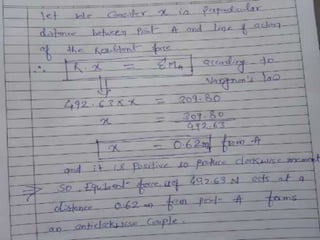 let we Consider x is perpendicular
distance between Post A and line of action
of the Resultent force
∴ [R.x = ΣMA] according to
Varignon's law
492.63 x x = 309.80
x = 309.80 / 492.63
x = 0.62m from A
and it is positive so Produce clockwise moment
⇒ So, Equlent force of 492.63 N acts at a
distance 0.62 m from post A forms
an anticlockwise couple.